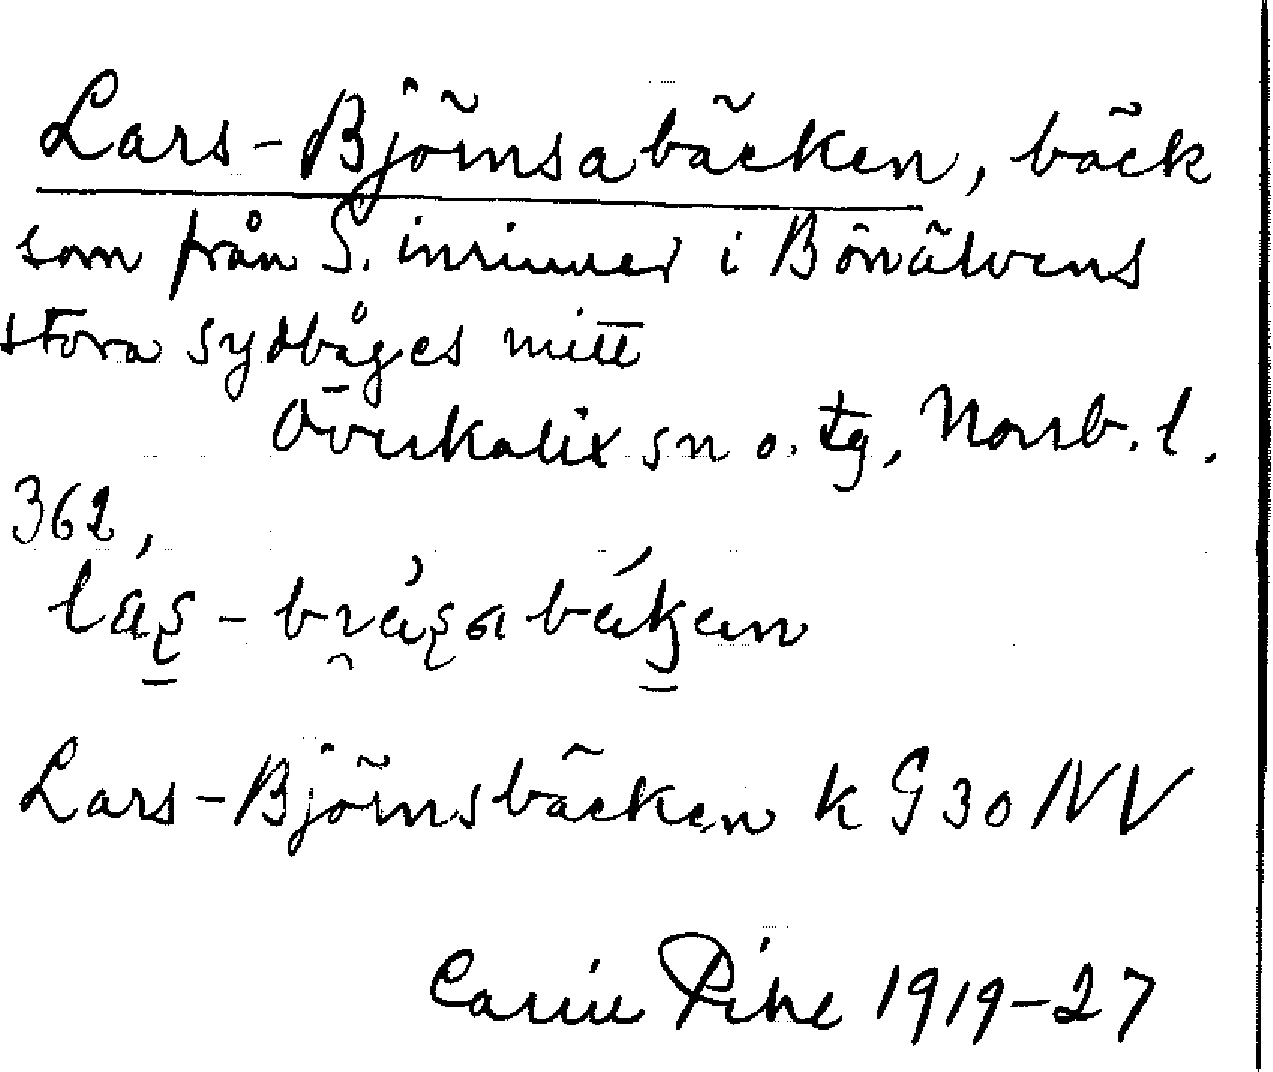 Lars-Björnsabäcken, bäck
som från S. inrinner i Bönälvens
stora sydbåges mitt
Överkalix sn o. tg, Norrb. l.
362,
Lars-Björnsbäcken k G 30 NV
Carin Pihl 1919-27